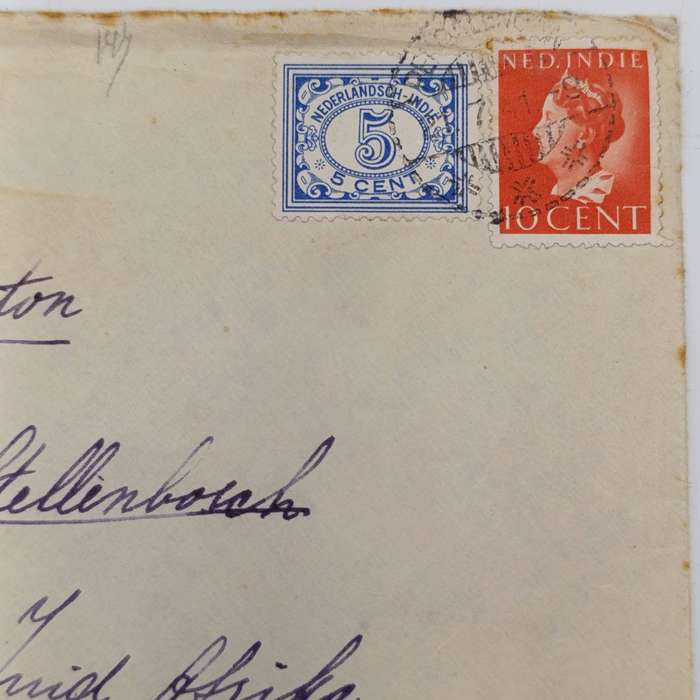 144
NEDERLANDSCH-INDIE
5
5 CENT
NED. INDIE
10 CENT
ton
tellenbosch
Zuid Afrika